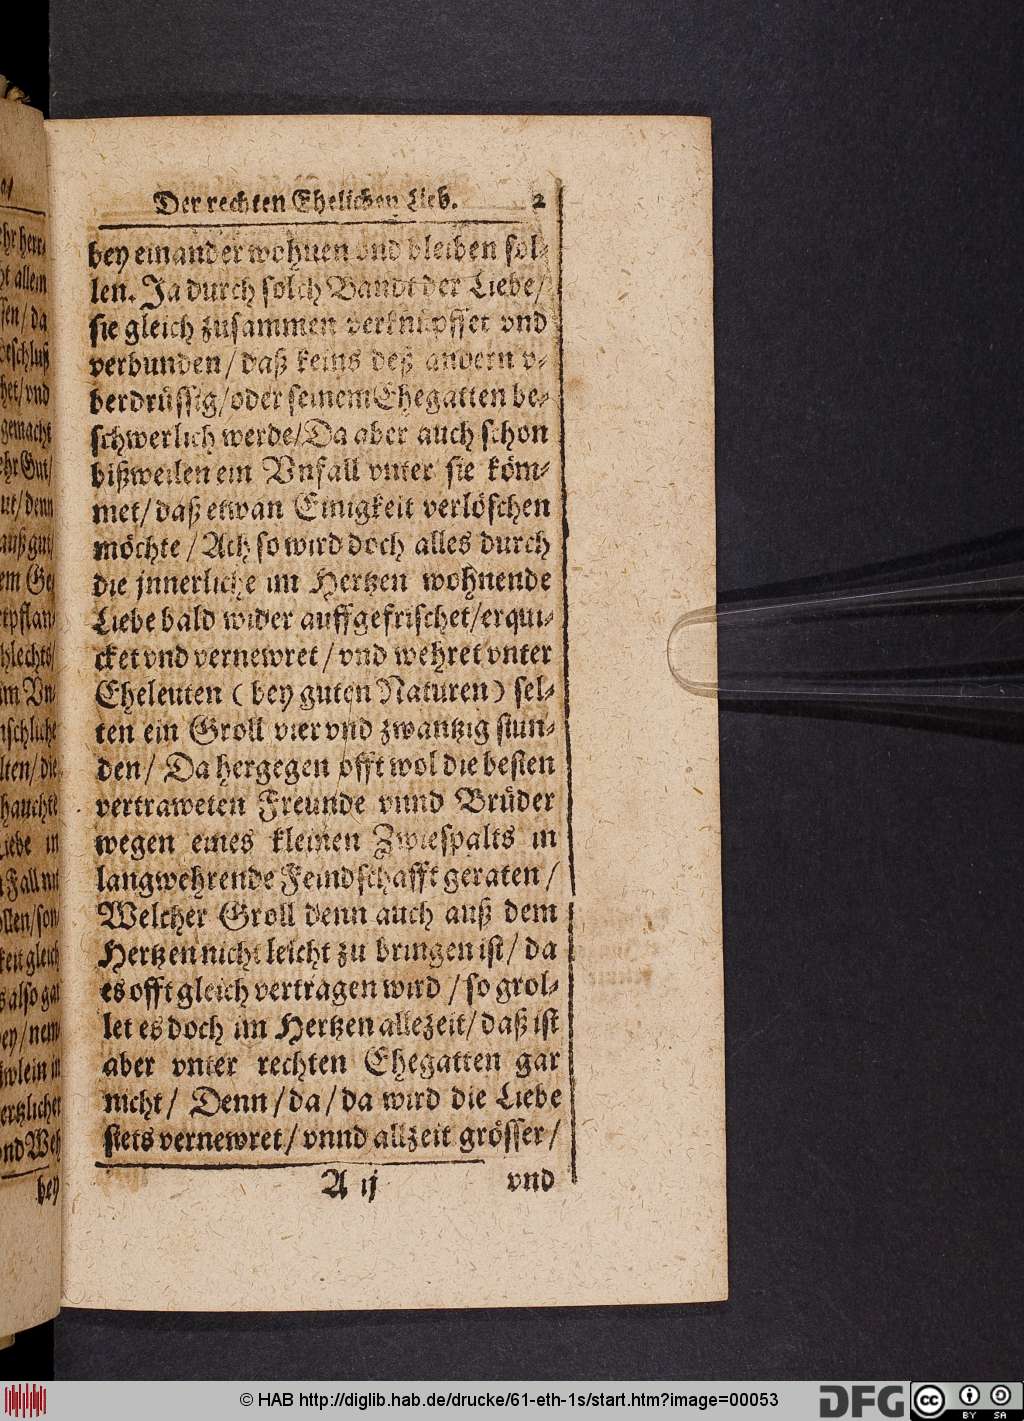 Der rechten Ehelichen Lieb. 2
bey einander wohnen vnd bleiben sol-
len. Ja durch solch Bandt der Liebe/
sie gleich zusammen verknüpffet vnd
verbunden/ daß keins deß andern v-
berdrüssig/ oder seinem Ehegatten be-
schwerlich werde/ Da aber auch schon
bißweilen ein Vnfall vnter sie köm-
met/ daß etwan Einigkeit verlöschen
möchte / Ach so wird doch alles durch
die jnnerliche im Hertzen wohnende
Liebe bald wider auffgefrischet/ erqui-
cket vnd vernewret / vnd wehret vnter
Eheleuten ( bey guten Naturen ) sel-
ten ein Groll vier vnd zwantzig stun-
den/ Da hergegen offt wol die besten
vertraweten Freunde vnnd Brüder
wegen eines kleinen Zwiespalts in
langwehrende Feindschafft geraten /
Welcher Groll denn auch auß dem
Hertzen nicht leicht zu bringen ist/ da
es offt gleich vertragen wird / so grol-
let es doch im Hertzen allezeit/ daß ist
aber vnter rechten Ehegatten gar
nicht/ Denn / da / da wird die Liebe
stets vernewret/ vnnd allzeit grösser/
A ij vnd
ht allein
gemacht
hlechts/
nschliche
hauchte
Liebe in
keit gleich
bey
© HAB http://diglib.hab.de/drucke/61-eth-1s/start.htm?image=00053
DFG
cc
BY SA